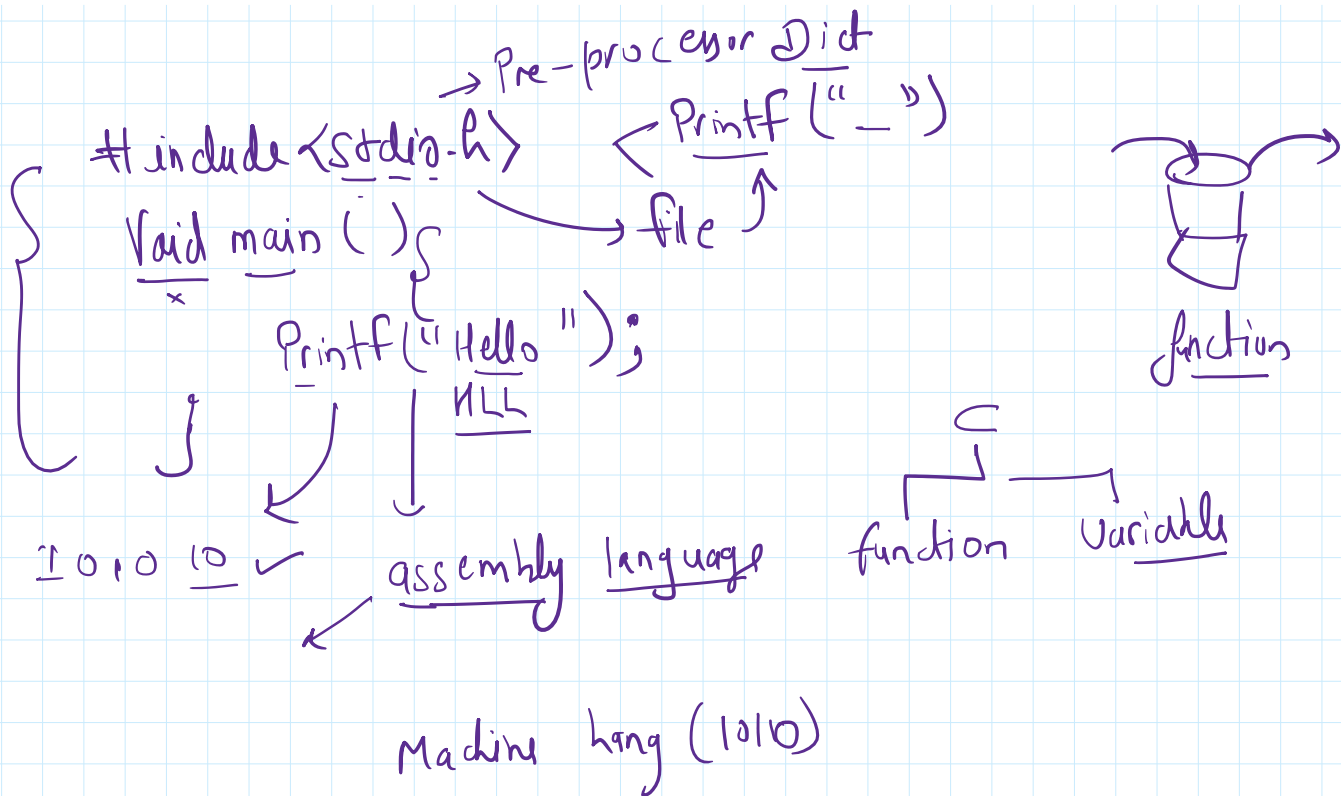 → Pre-processor Dict
#include <stdio.h>
< Printf ("_")
file
Void main () {
x
Printf ("Hello");
HLL
}
function
C
function variable
101010 ✓
assembly language
Machine Lang (1010)